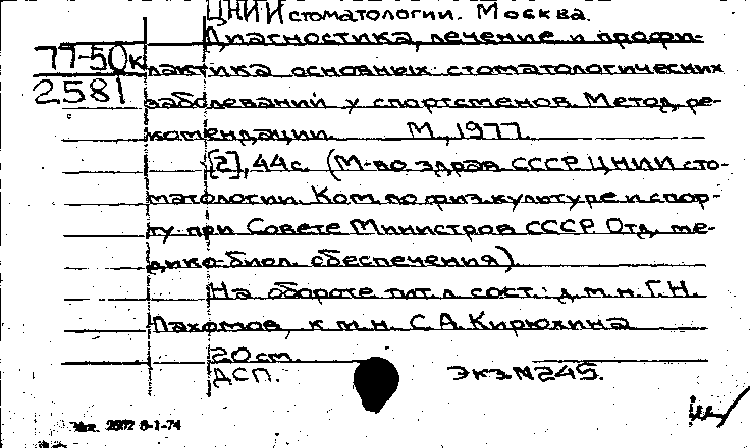 ЦНИИ стоматологии. Москва.
Диагностика, лечение и профи-
77-50к
лактика основных стоматологических
2581
заболеваний у спортсменов. Метод. ре-
комендации. М., 1977.
[2], 44с. (М-во здрав. СССР. ЦНИИ сто-
матологии. Ком. по физ. культуре и спор-
ту при Совете Министров СССР. Отд. ме-
дико-биол. обеспечения).
На обороте тит. л. сост.: д.м.н. Г.Н.
Пахомов, к.м.н. С.А. Кирюхина
20 см.
ДСП. Экз. №245.
Зак. 2602 8-1-74